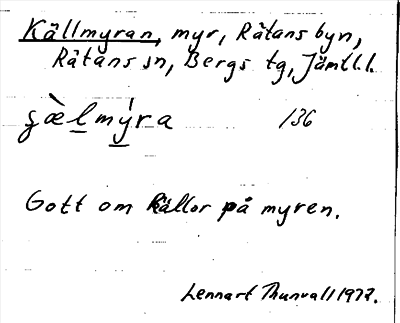 Källmyran, myr, Rätans byn,
Rätans sn, Bergs tg, Jämtl. l.
136
Gott om källor på myren.
Lennart Thunvall 1977.